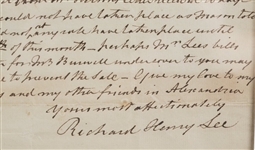 could not have taken place as Mason told
not any sale have taken place until
of this month - perhaps Mrs. Lees bills
for Mrs Burwell under cover to you may
to prevent the Sale - Give my love to my
and my other friends in Alexandria
Yours most affectionately
Richard Henry Lee